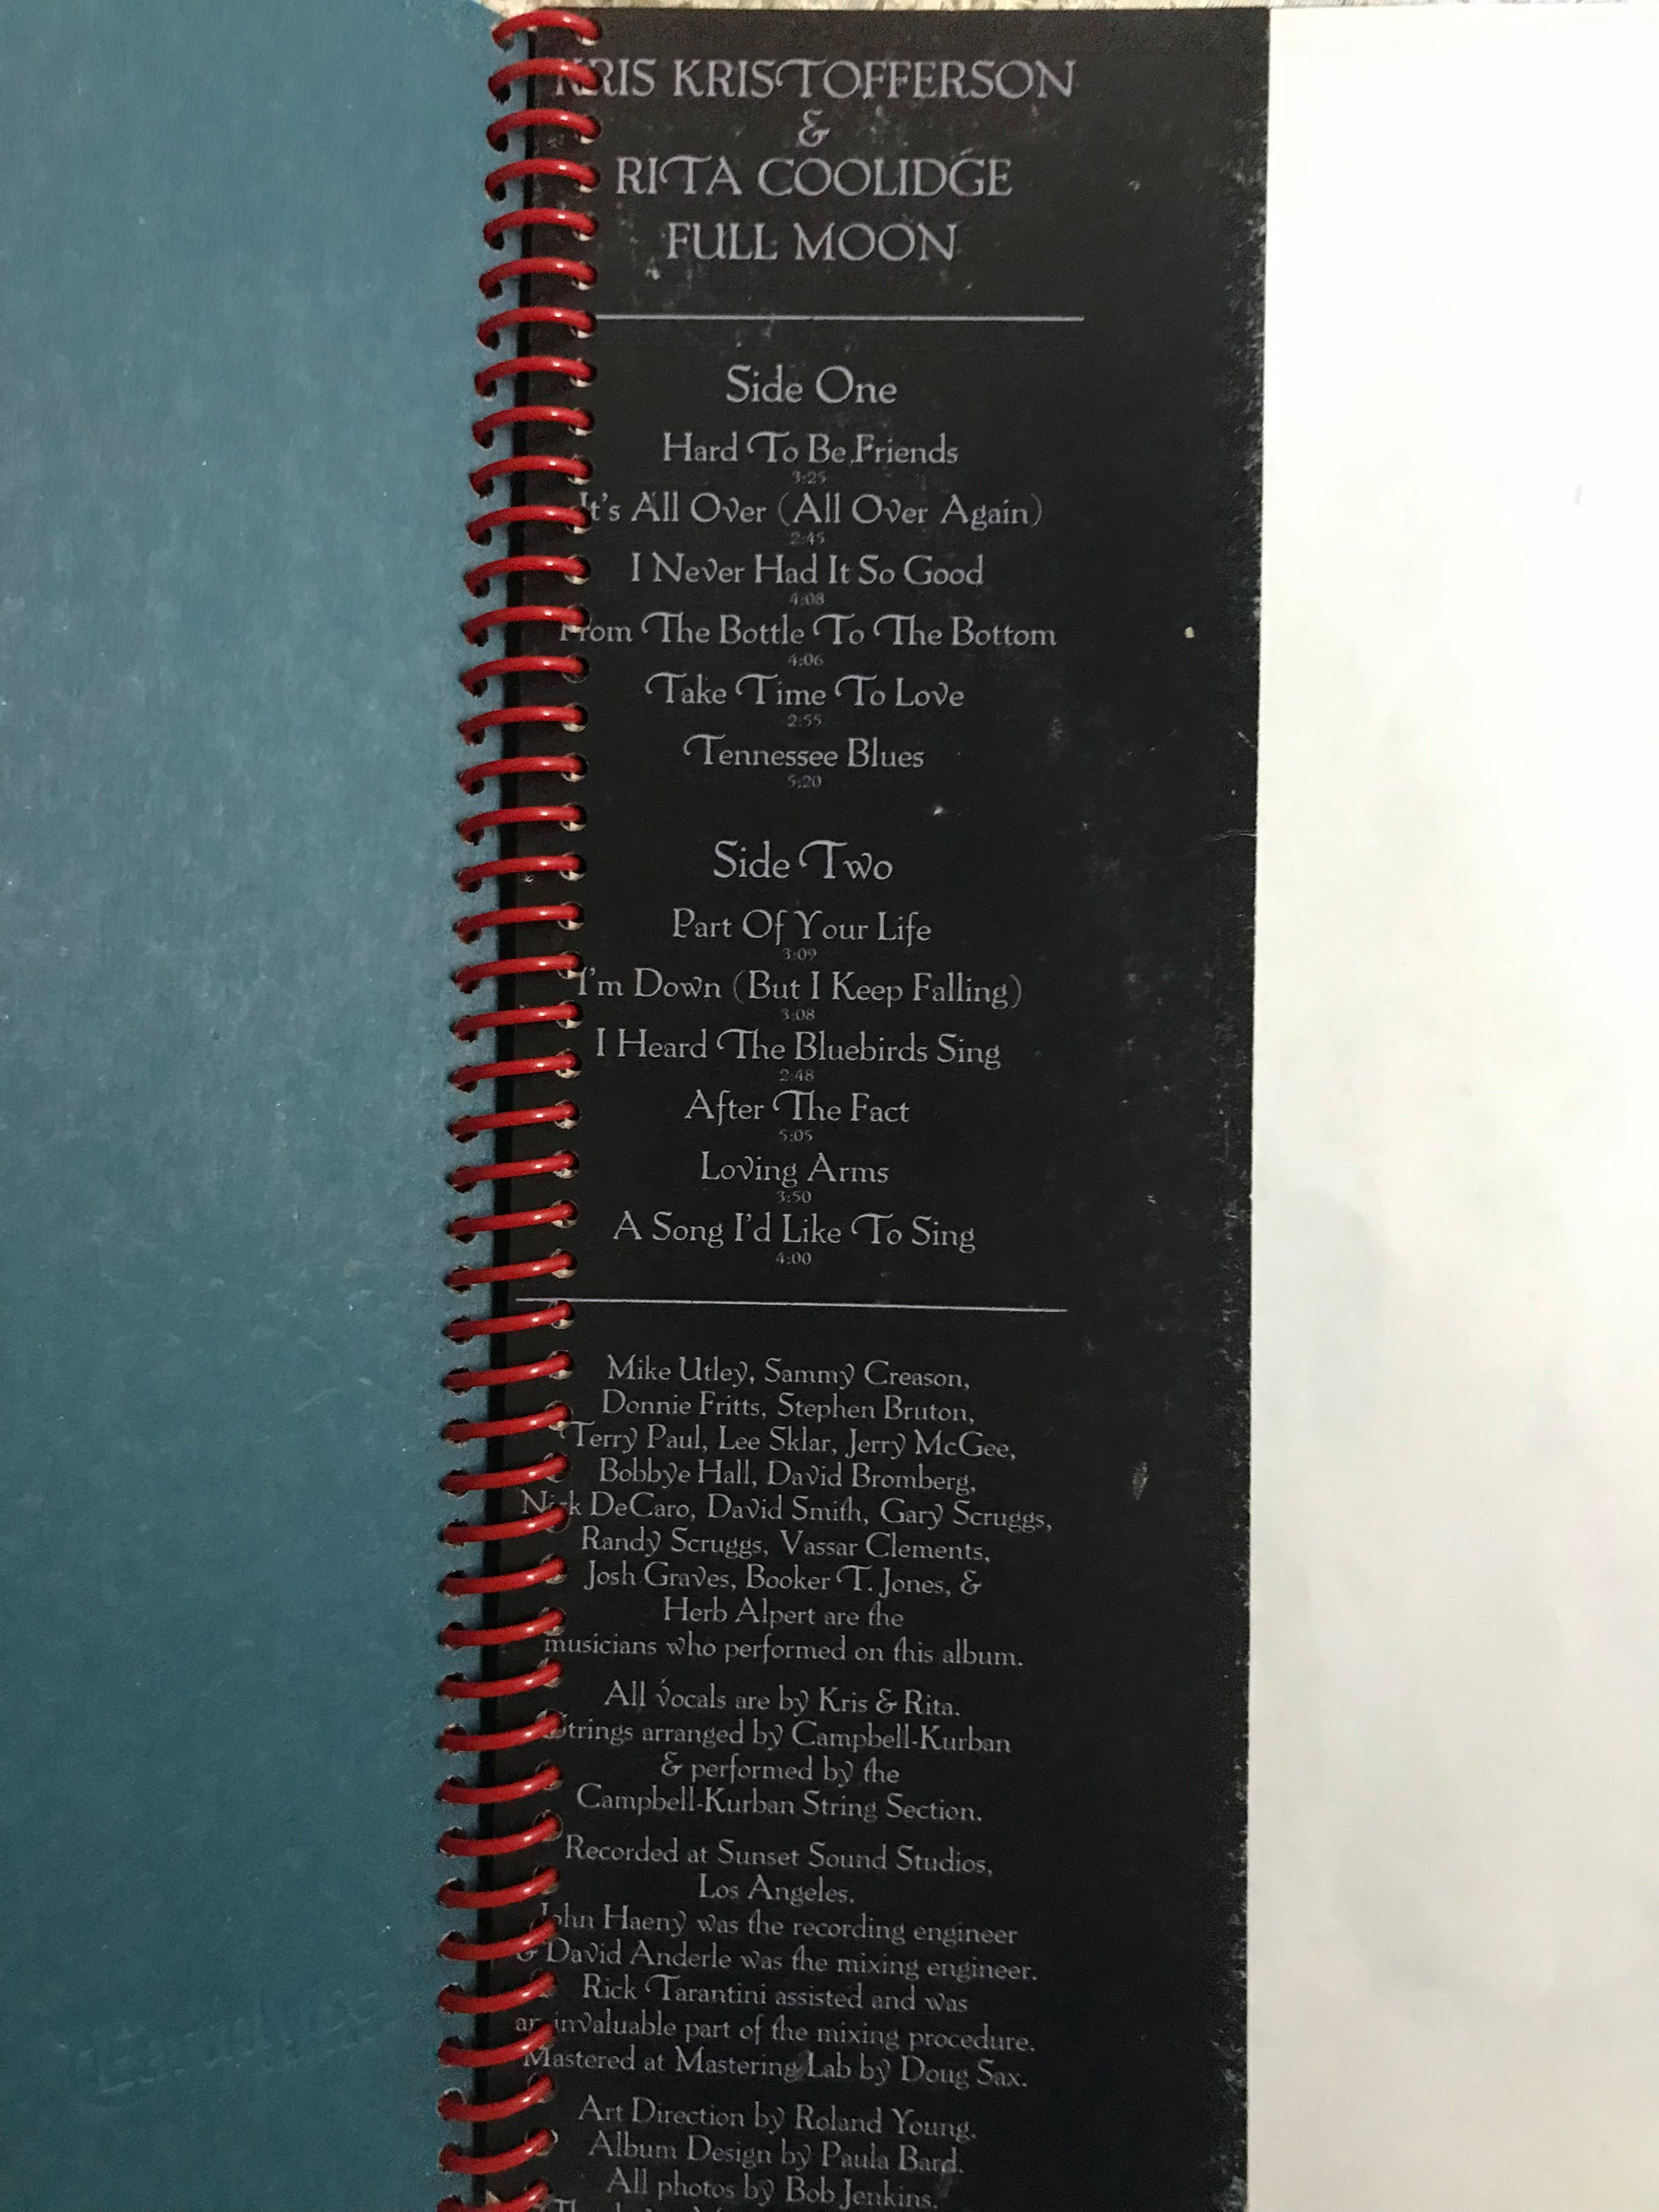 KRIS KRISTOFFERSON
&
RITA COOLIDGE
FULL MOON
Side One
Hard To Be Friends
3:25
It's All Over (All Over Again)
2:45
I Never Had It So Good
4:08
From The Bottle To The Bottom
4:06
Take Time To Love
2:55
Tennessee Blues
5:20
Side Two
Part Of Your Life
3:09
I'm Down (But I Keep Falling)
3:08
I Heard The Bluebirds Sing
2:48
After The Fact
5:05
Loving Arms
3:50
A Song I'd Like To Sing
4:00
Mike Utley, Sammy Creason,
Donnie Fritts, Stephen Bruton,
Terry Paul, Lee Sklar, Jerry McGee,
Bobbye Hall, David Bromberg,
Nick DeCaro, David Smith, Gary Scruggs,
Randy Scruggs, Vassar Clements,
Josh Graves, Booker T. Jones, &
Herb Alpert are the
musicians who performed on this album.
All vocals are by Kris & Rita.
Strings arranged by Campbell-Kurban
& performed by the
Campbell-Kurban String Section.
Recorded at Sunset Sound Studios,
Los Angeles.
John Haeny was the recording engineer
& David Anderle was the mixing engineer.
Rick Tarantini assisted and was
an invaluable part of the mixing procedure.
Mastered at Mastering Lab by Doug Sax.
Art Direction by Roland Young.
Album Design by Paula Bard.
All photos by Bob Jenkins.